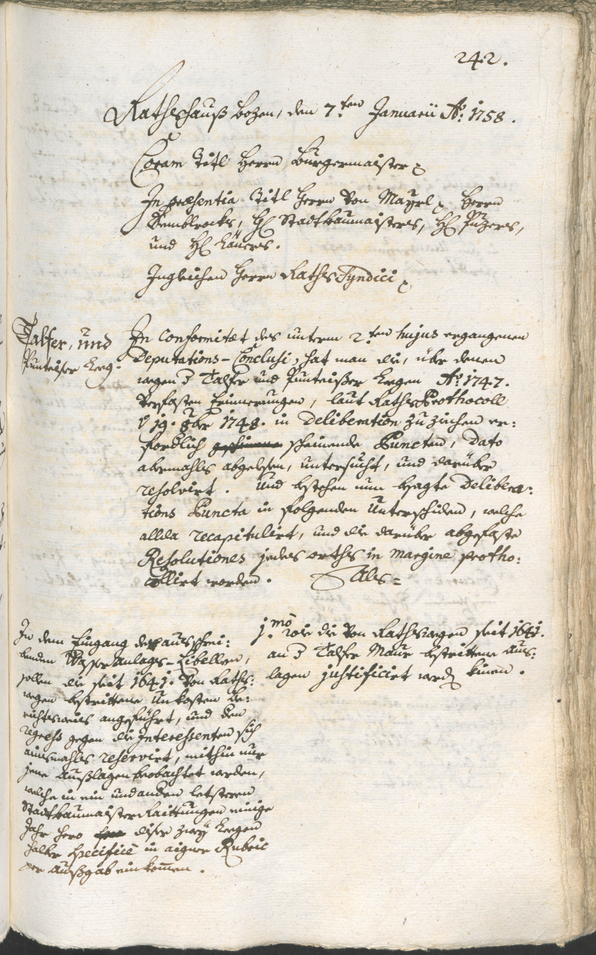 242.
Rathshauß Bozen, den 7.ten Januarii A.o 1758.
Coram Titl Herrn Burgermaister
In praesentia Titl Herrn von Mayrl, Herrn
H. Stadtbaumaisters, H.
und H.
Ingleichen Herrn Raths Syndici
Talfer, und
In conformitet des unterm 2.ten hujus ergangenen
Deputations-Conclusi, hat man die, über denen
wegen der Talfer und Legen A.o 1747.
verfasten Erinnerungen, laut Raths Prothocoll
19. 8ber 1748. in Deliberation zu ziechen er-
fordlich scheinende Puncten, dato
abermahls abgelesen, untersucht, und darüber
resolvirt. Und bestehen nun besagte Delibera-
tions Puncta in folgenden Unterschiden, welche
allda recapitulirt, und die darüber abgefaste
Resolutiones jedes orths in margine protho-
collirt worden. Als=
1.mo wie die von Rathswegen seit 1641.
an der Talfer Maur bestrittene Aus-
lagen justificirt werden könen.
In dem Eingang des ausschrei-
benden Wasser Anlags-Libellen,
sollen die seit 1641. von Raths-
wegen bestrittene Unkosten be-
richtsweis angeführt, und dem
regress gegen die Interessenten sich
ausmahls reservirt, mithin nur
jene Außlagen beobachtet werden,
welche in ein und anderen letsteren
Stadtbaumaister Raittungen einige
Jahr hero diser zway Legen
halber specifice in aigner Rubric
per Außgab einkommen.